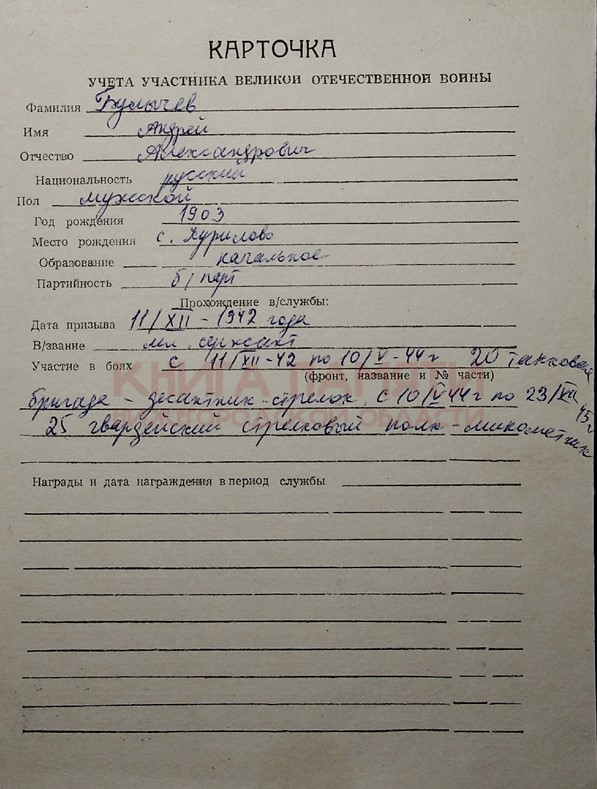 КАРТОЧКА
УЧЕТА УЧАСТНИКА ВЕЛИКОЙ ОТЕЧЕСТВЕННОЙ ВОЙНЫ
Фамилия Булычев
Имя Андрей
Отчество Александрович
Национальность русский
Пол мужской
Год рождения 1903
Место рождения с. Курилово
Образование начальное
Партийность б/парт
Прохождение в/службы:
Дата призыва 11/XII - 1942 года
В/звание мл. сержант
Участие в боях с 11/XII-42 по 10/V-44 г 20 танковая
(фронт, название и № части)
КНИГА ПАМЯТИ
бригада - десантник-стрелок. С 10/V 44 г по 23/VIII 45 г
25 гвардейский стрелковый полк - минометчик
Награды и дата награждения в период службы